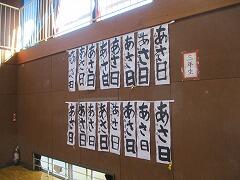 三年生
あさ日
あさ日
あさ日
あさ日
あさ日
あさ日
あさ日
あさ日
あさ日
あさ日
あさ日
あさ日